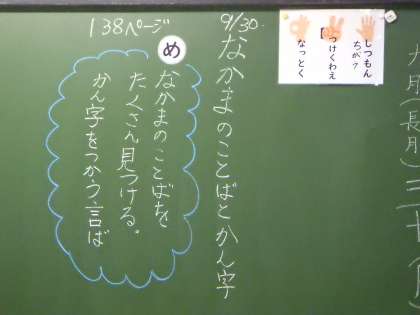 九月(長月)三十日(
しつもん
ちがう
つけくわえ
なっとく
9/30
なかまのことばとかん字
138ページ
め
なかまのことばを
たくさん見つける。
かん字をつかう言ば